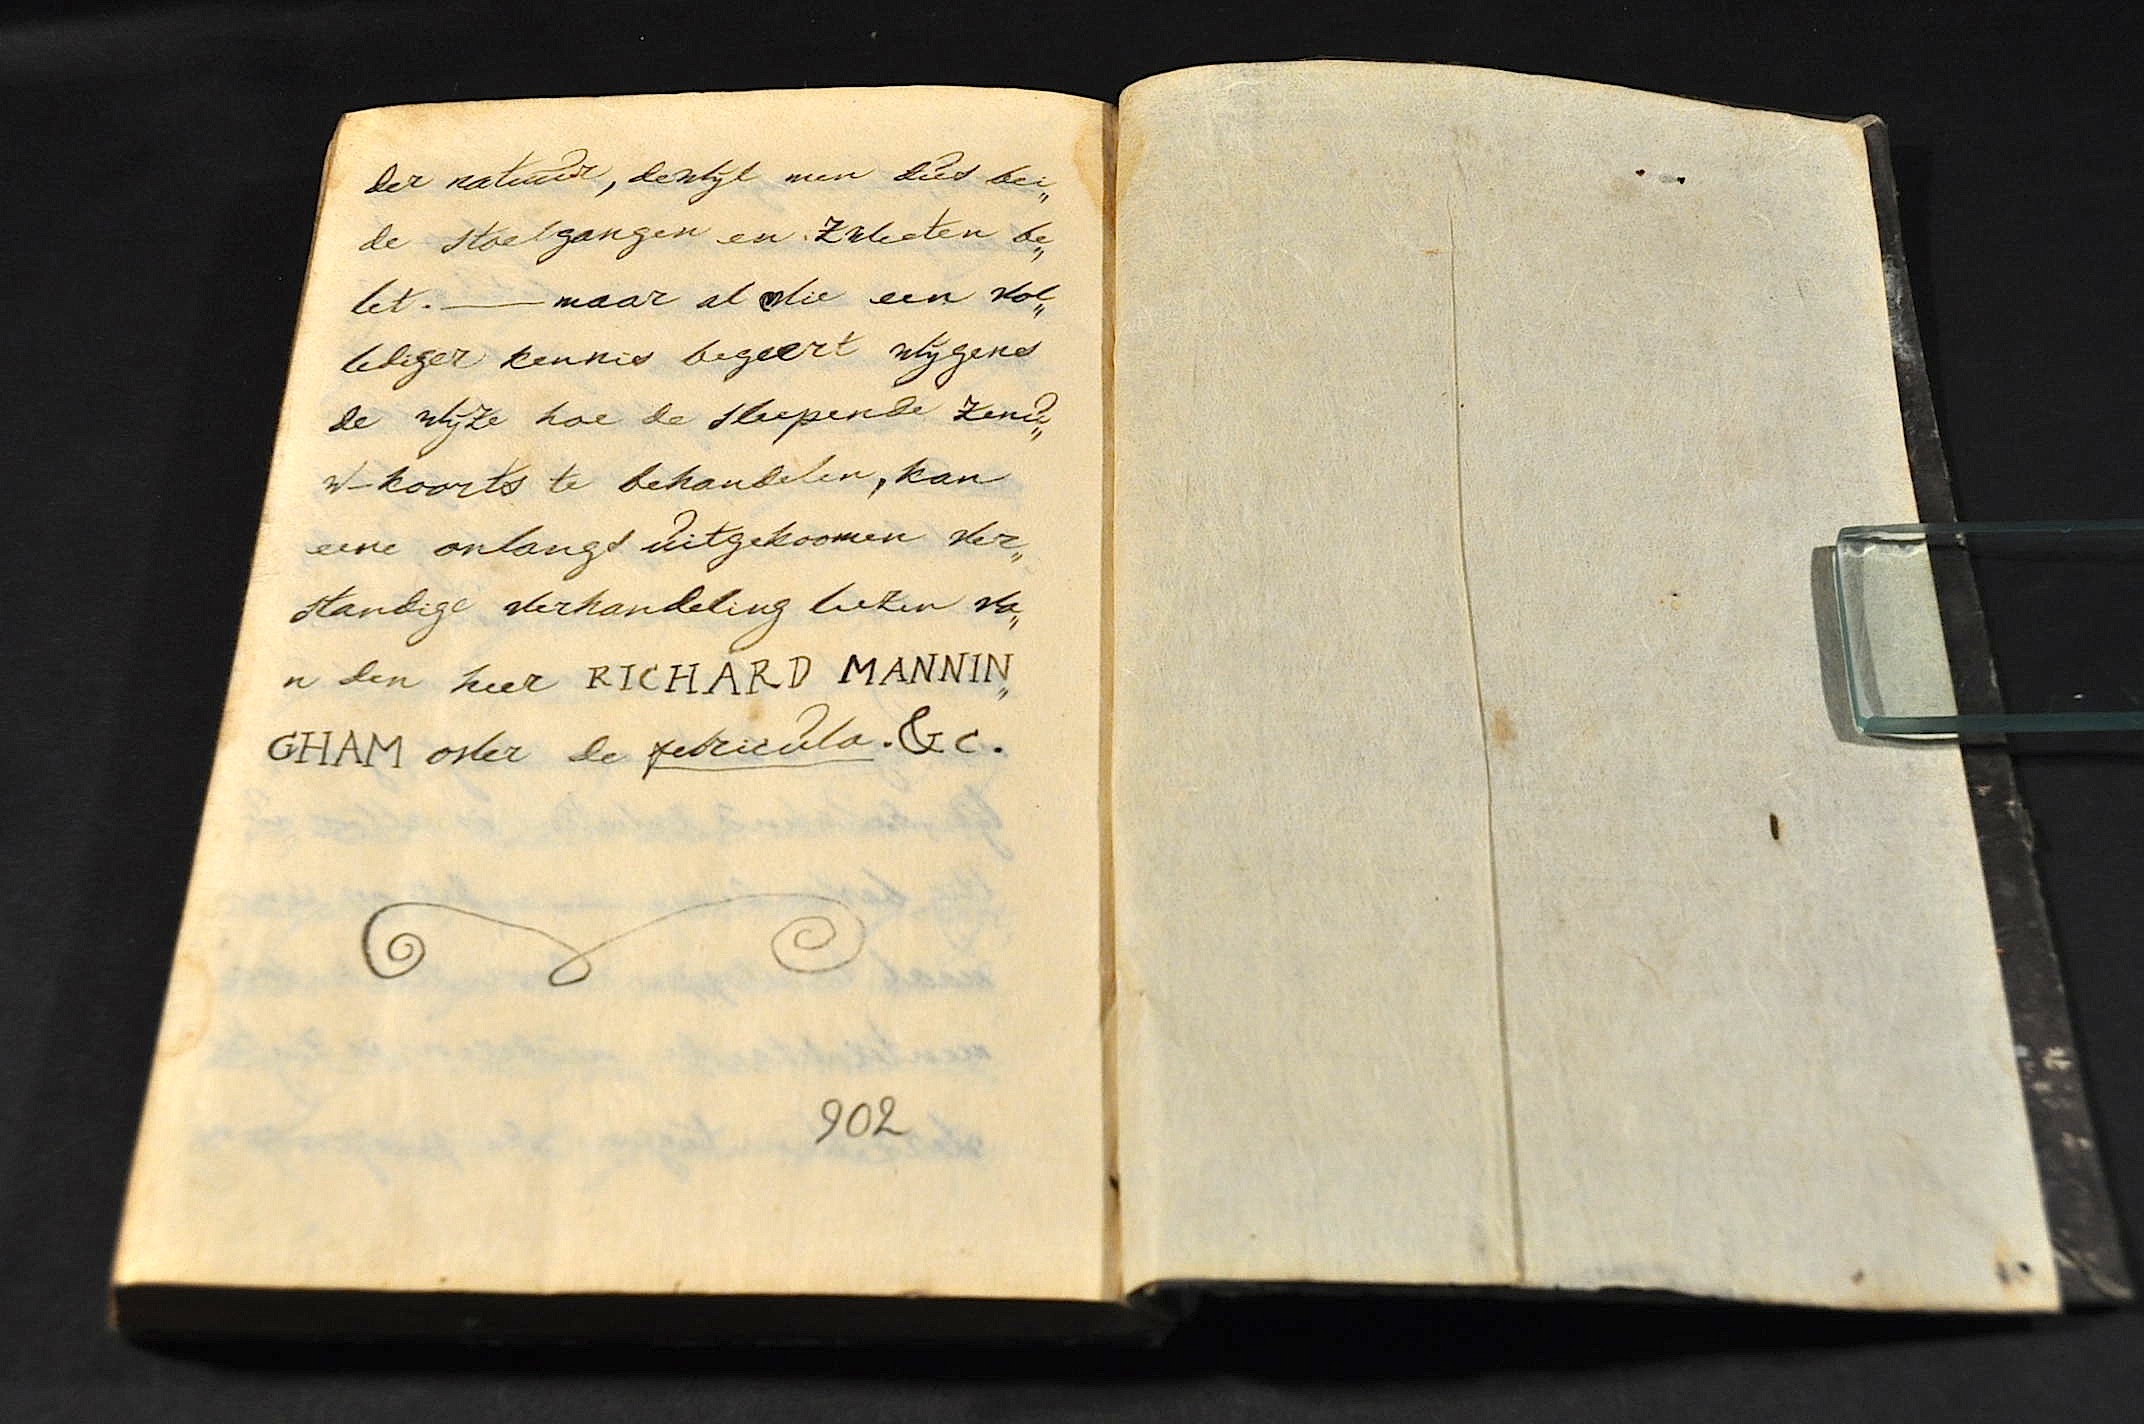 der natuur, dewijl men dus bei„
de stoelgangen en zweeten be„
let. — maar al wie een vol„
lediger kennis begeert wegens
de wijze hoe de sleepende zenu„
w-koorts te behandelen, kan
eene onlangs uitgekoomen ver„
standige verhandeling leezen va„
n den heer RICHARD MANNIN„
GHAM over de febricula. &c.
902